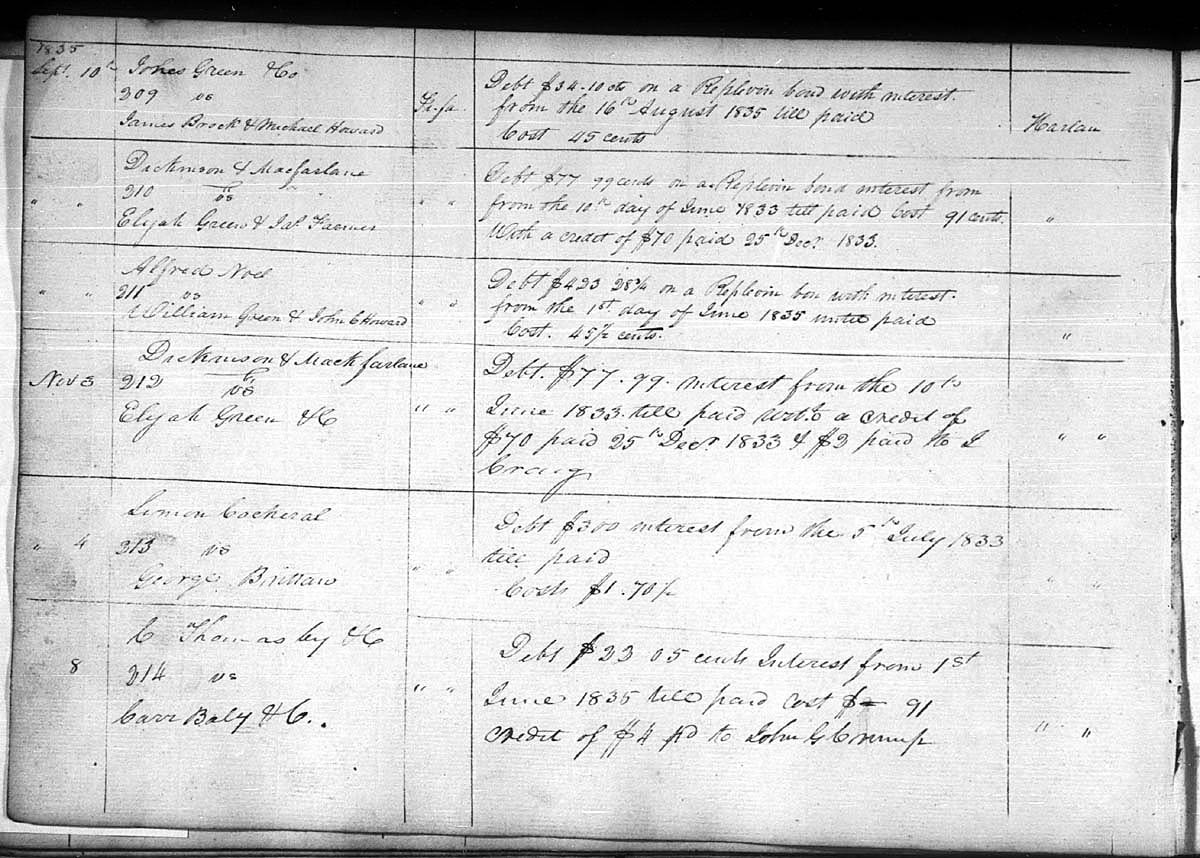 1835
Sept. 10th Johes Green & Co
209 vs
James Brock & Michael Howard
Fi. fa.
Debt $34.10 cts on a Replevin bond with interest.
from the 16th August 1835 till paid
Cost 45 cents
Harlan
Dickinson & Macfarlane
" " 210 vs
Elijah Green & Jas. Farmer
" "
Debt $77 99 cents on a Replevin bond interest from
from the 10th day of June 1833 till paid Cost 91 cents.
With a credit of $70 paid 25th Decr 1833.
"
Alfred Noel
" " 211 vs
William Green & John C Howard
" "
Debt $423 28¼ on a Replevin bon with interest.
from the 1st day of June 1835 until paid
Cost. 45½ cents.
"
Dickinson & Mackfarlane
Nov 3 212 vs
Elijah Green & C
" "
Debt. $77.99. interest from the 10th
June 1833 till paid with a credit of
$70 paid 25th Decr 1833 & $2 paid to J
Craig
" "
Simon Cockeral
" 4 213 vs
George Brittan
" "
Debt $300 interest from the 5th July 1833
till paid
Costs $1.70½
" "
C Thomasby & C
8 214 vs
Carr Baly & C.
" "
Debt $23 05 cents Interest from 1st
June 1835 till paid cost $– 91
credit of $4 pd to John G Crump
" "